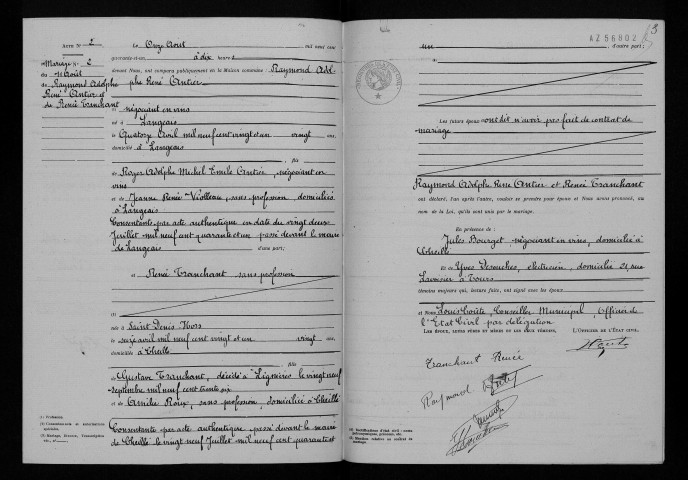 Acte N° 2
Mariage N° 2
du 11 Août
de Raymond Adolphe
René Antier
et
de Renée Tranchant
Le Onze Août mil neuf cent
quarante-et-un à dix heures
devant Nous, ont comparu publiquement en la Maison commune : Raymond Adol-
phe René Antier
négociant en vins
né à Langeais
le Quatorze Avril mil neuf cent vingt et un vingt ans,
domicilié à Langeais
fils
de Roger Adolphe Michel Emile Antier, négociant en
vins
et de Jeanne Renée Violleau, sans profession domiciliés
à Langeais
Consentants par acte authentique en date du vingt deux
Juillet mil neuf cent quarante et un passé devant le maire
de Langeais d'une part ;
et Renée Tranchant sans profession
née à Saint Denis Hors
le seize avril mil neuf cent vingt et un vingt ans,
domiciliée à Cheillé
fille
de Gustave Tranchant, décédé à Lignières le vingt neuf
septembre mil neuf cent trente six
et de Amélie Roux, sans profession, domiciliée à Cheillé
Consentante par acte authentique, passé devant le maire
de Cheillé le vingt neuf Juillet mil neuf cent quarante et
(1) Profession.
AZ56802
3
un d'autre part ;
Les futurs époux ont dit n'avoir pas fait de contrat de
mariage
Raymond Adolphe René Antier et Renée Tranchant
ont déclaré, l'un après l'autre, vouloir se prendre pour époux et Nous avons prononcé, au
nom de la Loi, qu'ils sont unis par le mariage.
En présence de :
Jules Bourget négociant en vins, domicilié à
Cheillé
et de Yves Desouches, électricien, domicilié 21, rue
Lavoisier à Tours
témoins majeurs qui, lecture faite, ont signé avec les époux
et Nous Louis Conseiller Municipal, Officier de
l'Etat Civil par délégation
Les époux, leurs pères et mères et les dux témoins, L'Officier de l'État civil,
Tranchant Renée
Raymond Antier